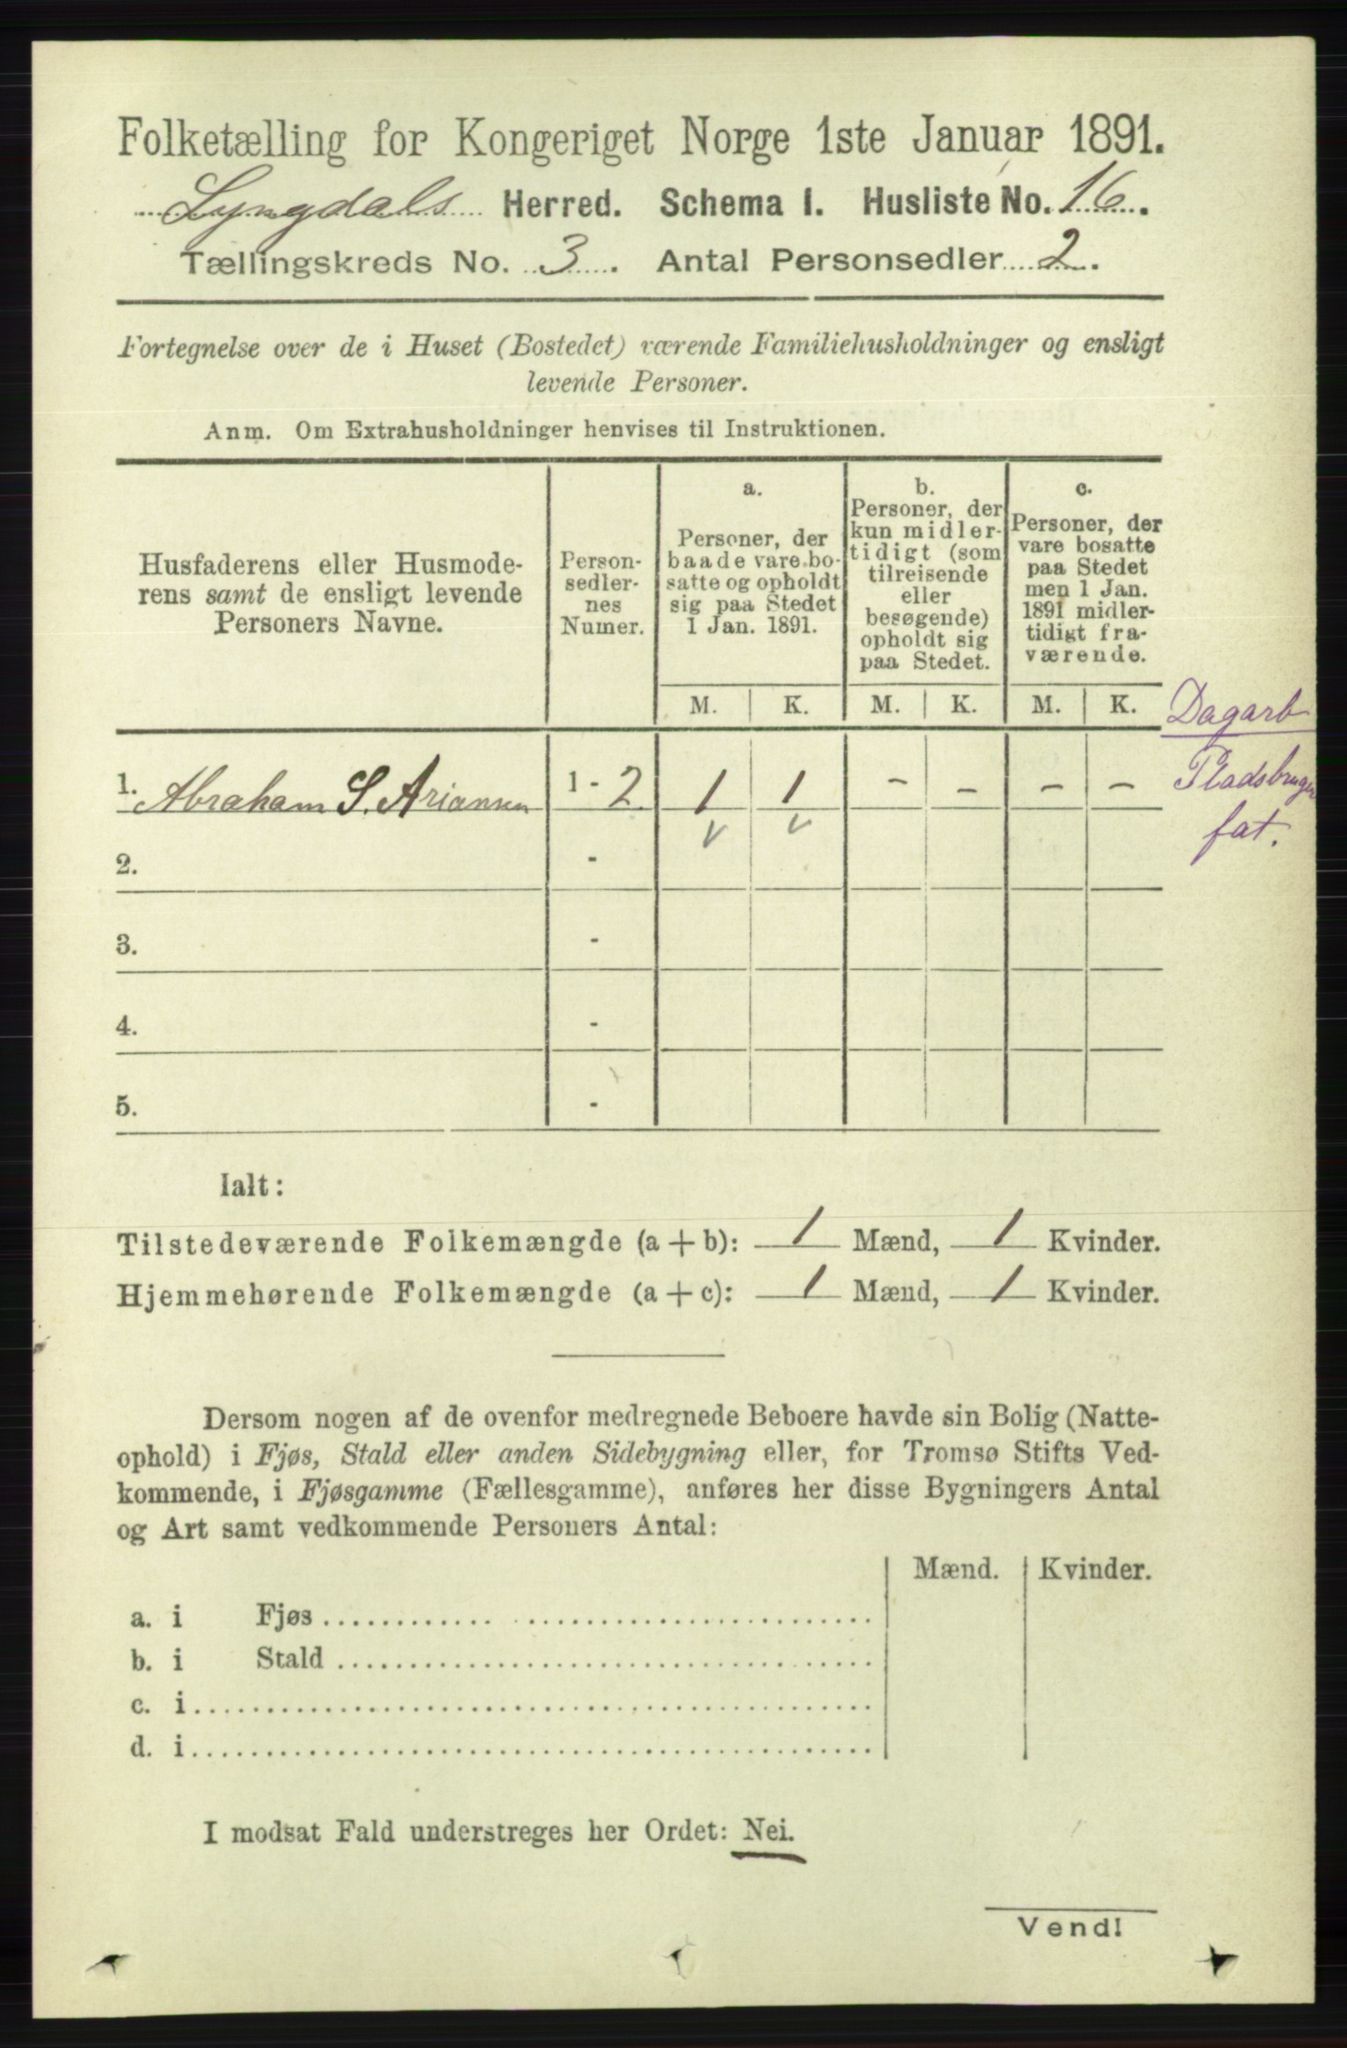 Folketælling for Kongeriget Norge 1ste Januar 1891.
Lyngdals Herred. Schema I. Husliste No. 16.
Tællingskreds No. 3. Antal Personsedler 2.
Fortegnelse over de i Huset (Bostedet) værende Familiehusholdninger og ensligt
levende Personer.
Anm. Om Extrahusholdninger henvises til Instruktionen.
Husfaderens eller Husmode-
rens samt de ensligt levende
Personers Navne.
Person-
sedler-
nes
Numer.
a.
Personer, der
baade vare bo-
satte og opholdt
sig paa Stedet
1 Jan. 1891.
b.
Personer, der
kun midler-
tidigt (som
tilreisende
eller
besøgende)
opholdt sig
paa Stedet.
c.
Personer, der
vare bosatte
paa Stedet
men 1 Jan.
1891 midler-
tidigt fra-
værende.
M. K. M. K. M. K.
Dagarb
Pladsbruger
fat.
1. Abraham S. Ariansen 1 - 2 1 1 - - - -
2. -
3. -
4. -
5. -
Ialt:
Tilstedeværende Folkemængde (a + b): 1 Mænd, 1 Kvinder.
Hjemmehørende Folkemængde (a + c): 1 Mænd, 1 Kvinder.
Dersom nogen af de ovenfor medregnede Beboere havde sin Bolig (Natte-
ophold) i Fjøs, Stald eller anden Sidebygning eller, for Tromsø Stifts Ved-
kommende, i Fjøsgamme (Fællesgamme), anføres her disse Bygningers Antal
og Art samt vedkommende Personers Antal:
Mænd. Kvinder.
a. i Fjøs
b. i Stald
c. i
d. i
I modsat Fald understreges her Ordet: Nei.
Vend!